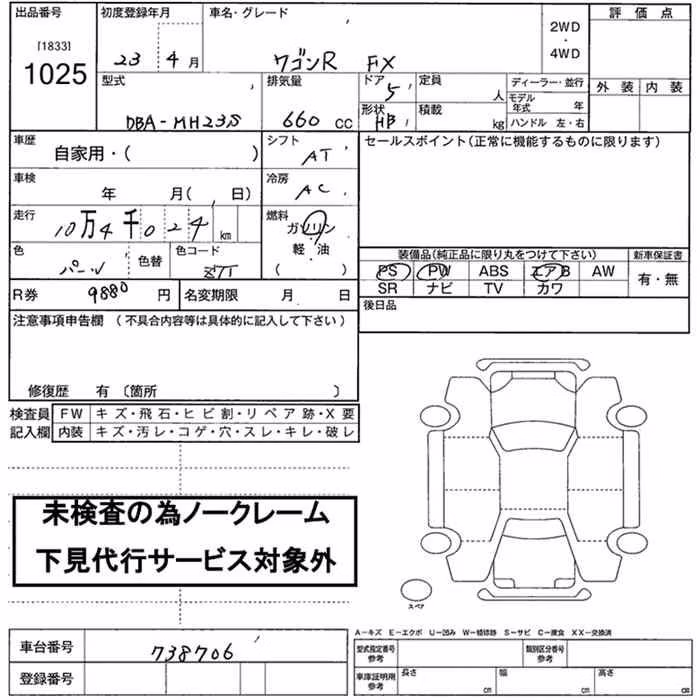 出品番号 初度登録年月 車名・グレード 評価点
[1833] 2WD
1025 23年4月 ワゴンR FX ・
4WD
型式 排気量 ドア 定員 ディーラー・並行 外装 内装
5 人 モデル年式 年
DBA-MH23S 660cc 形状 HB 積載 kg ハンドル 左・右
車歴 シフト セールスポイント(正常に機能するものに限ります)
自家用・( ) AT
車検 冷房
年 月( 日) AC
走行 燃料
10万4千024km ガソリン
軽・油
色 色替 色コード ( ) 装備品(純正品に限り丸をつけて下さい) 新車保証書
パール PS PW ABS エアB AW 有・無
R券 9880円 名変期限 月 日 SR ナビ TV カワ
注意事項申告欄 (不具合内容等は具体的に記入して下さい) 後日品
修復歴 有 〔箇所 〕
検査員 FW キズ・飛石・ヒビ割・リペア跡・X要
記入欄 内装 キズ・汚レ・コゲ・穴・スレ・キレ・破レ
未検査の為ノークレーム
下見代行サービス対象外
スペア
A-キズ E-エクボ U-凹み W-補修跡 S-サビ C-腐食 XX-交換済
車台番号 738706 型式指定番号 参考 類別区分番号 参考
登録番号 車庫証明用 参考 長さ cm 幅 cm 高さ cm